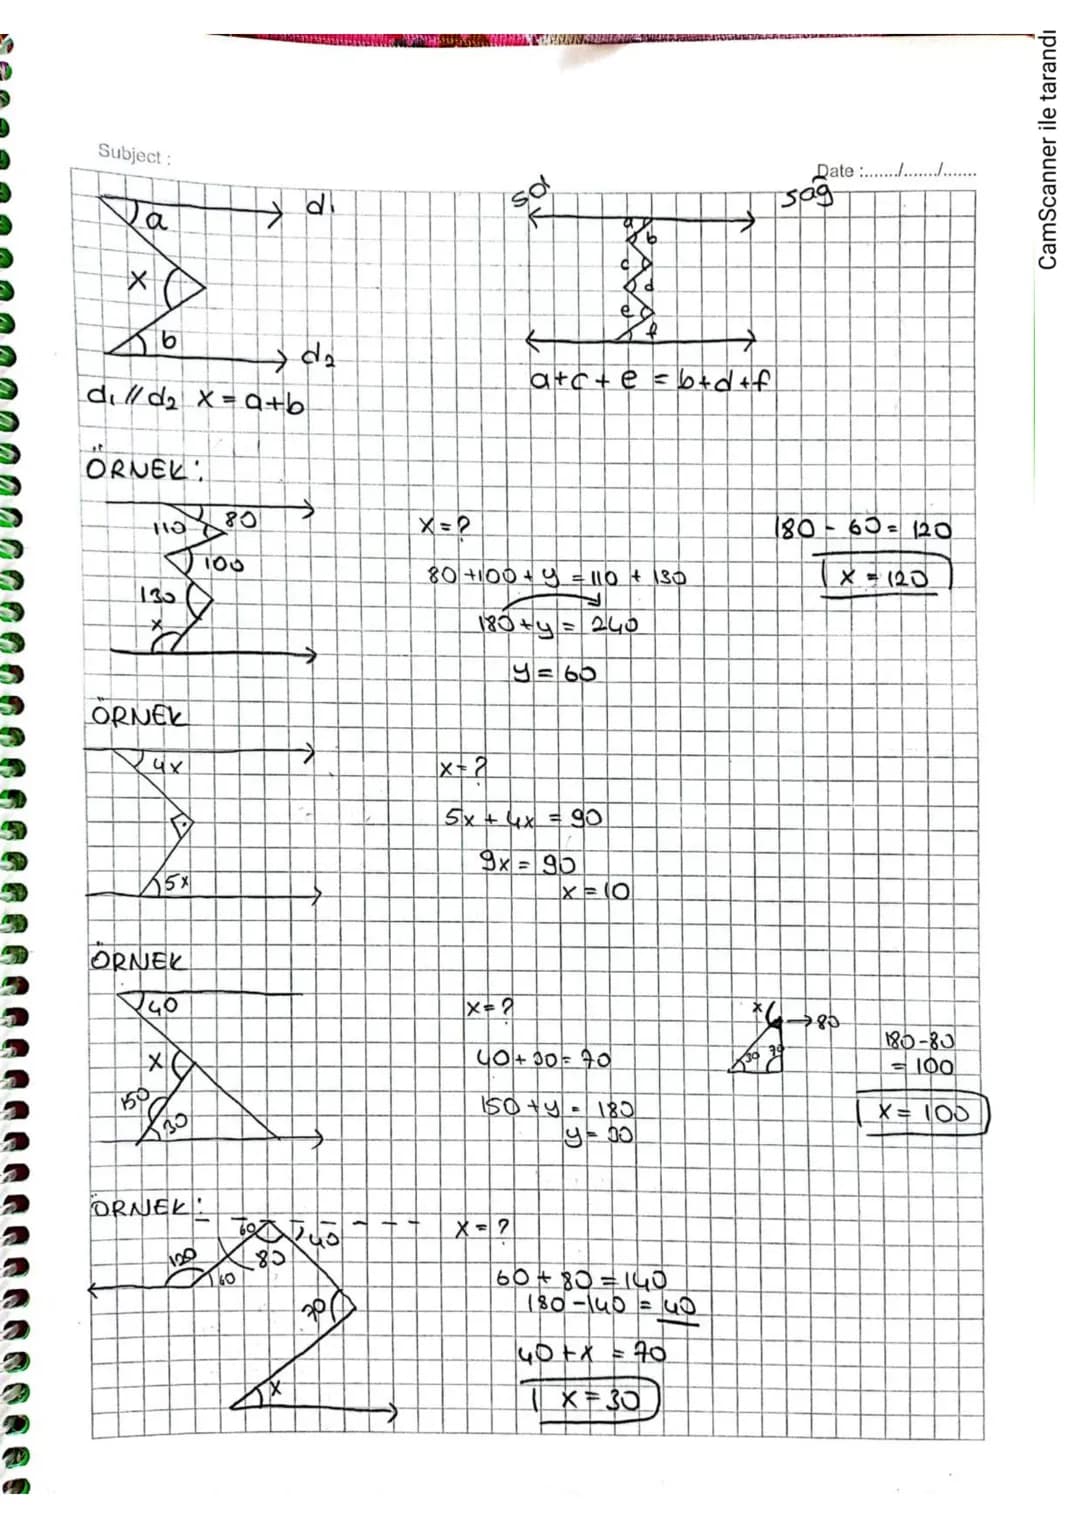 CamScanner ile tarandı
Subject :
Date :......./......./.......
a
d₁
x
b
d₂
d₁ // d₂ x = a+b
sol
sağ
a
b
c
d
e
f
a+c+e = b+d+f
ÖRNEK:
110
80
100
130
x
x = ?
80+100+y = 110 + 130
180+y = 240
y = 60
180 - 60 = 120
x = 120
ÖRNEK
4x
5x
x = ?
5x + 4x = 90
9x = 90
x = 10
ÖRNEK
40
x
150
30
x = ?
40+30 = 70
150 + y = 180
y = 30
x
→80
30
70
180-80
= 100
x = 100
ÖRNEK:
60
40
120
80
60
70
x
x = ?
60 + 80 = 140
180 - 140 = 40
40 + x = 70
x = 30